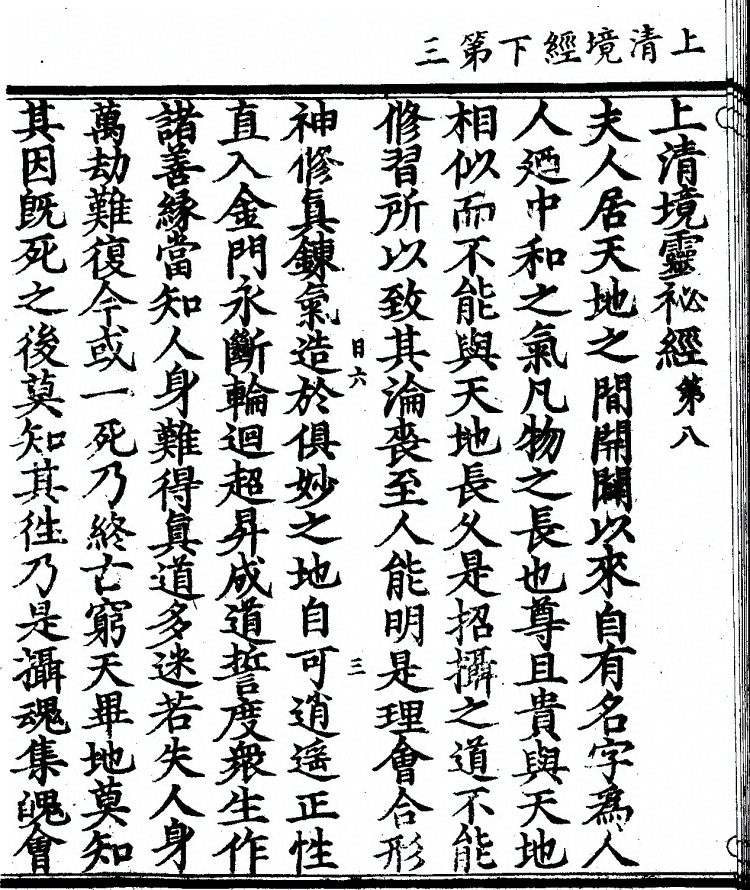 上清境經下第三
上清境靈祕經第八
夫人居天地之間開闢以來自有名字為人
人廼中和之氣凡物之長也尊且貴與天地
相似而不能與天地長久是招攝之道不能
修習所以致其淪喪至人能明是理會合形
日六 三
神修真鍊氣造於俱妙之地自可逍遥正性
直入金門永斷輪迴超昇成道誓度衆生作
諸善緣當知人身難得真道多迷若失人身
萬劫難復今或一死乃終亡窮天畢地莫知
其因既死之後莫知其徃乃是攝魂集魄會